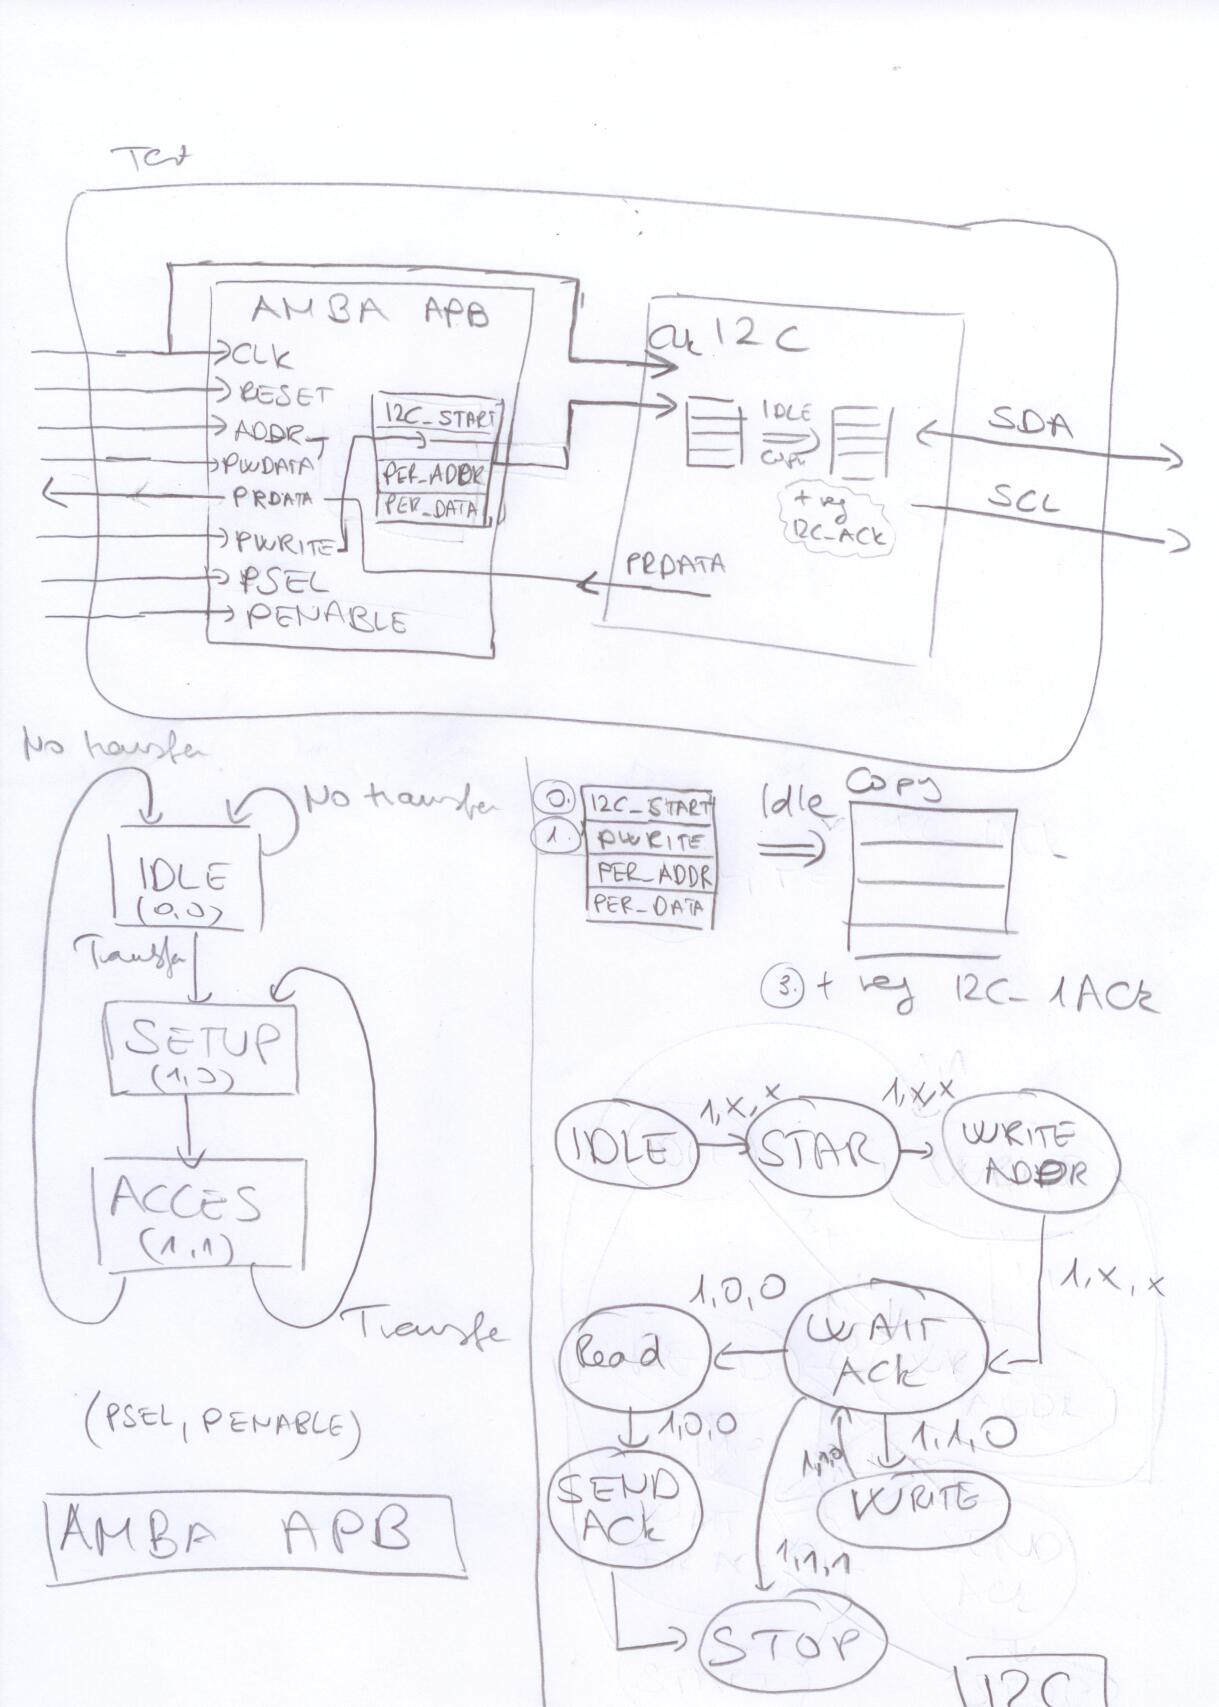 AMBA APB
CLK
RESET
ADDR
PWDATA
PRDATA
PWRITE
PSEL
PENABLE
I2C_START
PER_ADDR
PER_DATA
Clk I2C
IDLE
Copy
+ reg
I2C_ACK
PRDATA
SDA
SCL
No transfer
No transfer
IDLE
(0,0)
Transfer
SETUP
(1,0)
ACCES
(1,1)
Transfe
(PSEL, PENABLE)
AMBA APB
0. I2C_START
1. PWRITE
PER_ADDR
PER_DATA
Idle
Copy
3. + reg I2C_1ACK
IDLE
1,x,x
STAR
1,x,x
WRITE
ADDR
1,x,x
WAIT
ACK
1,0,0
Read
1,0,0
SEND
ACK
1,1,0
1,1,0
WRITE
1,1,1
STOP
I2C